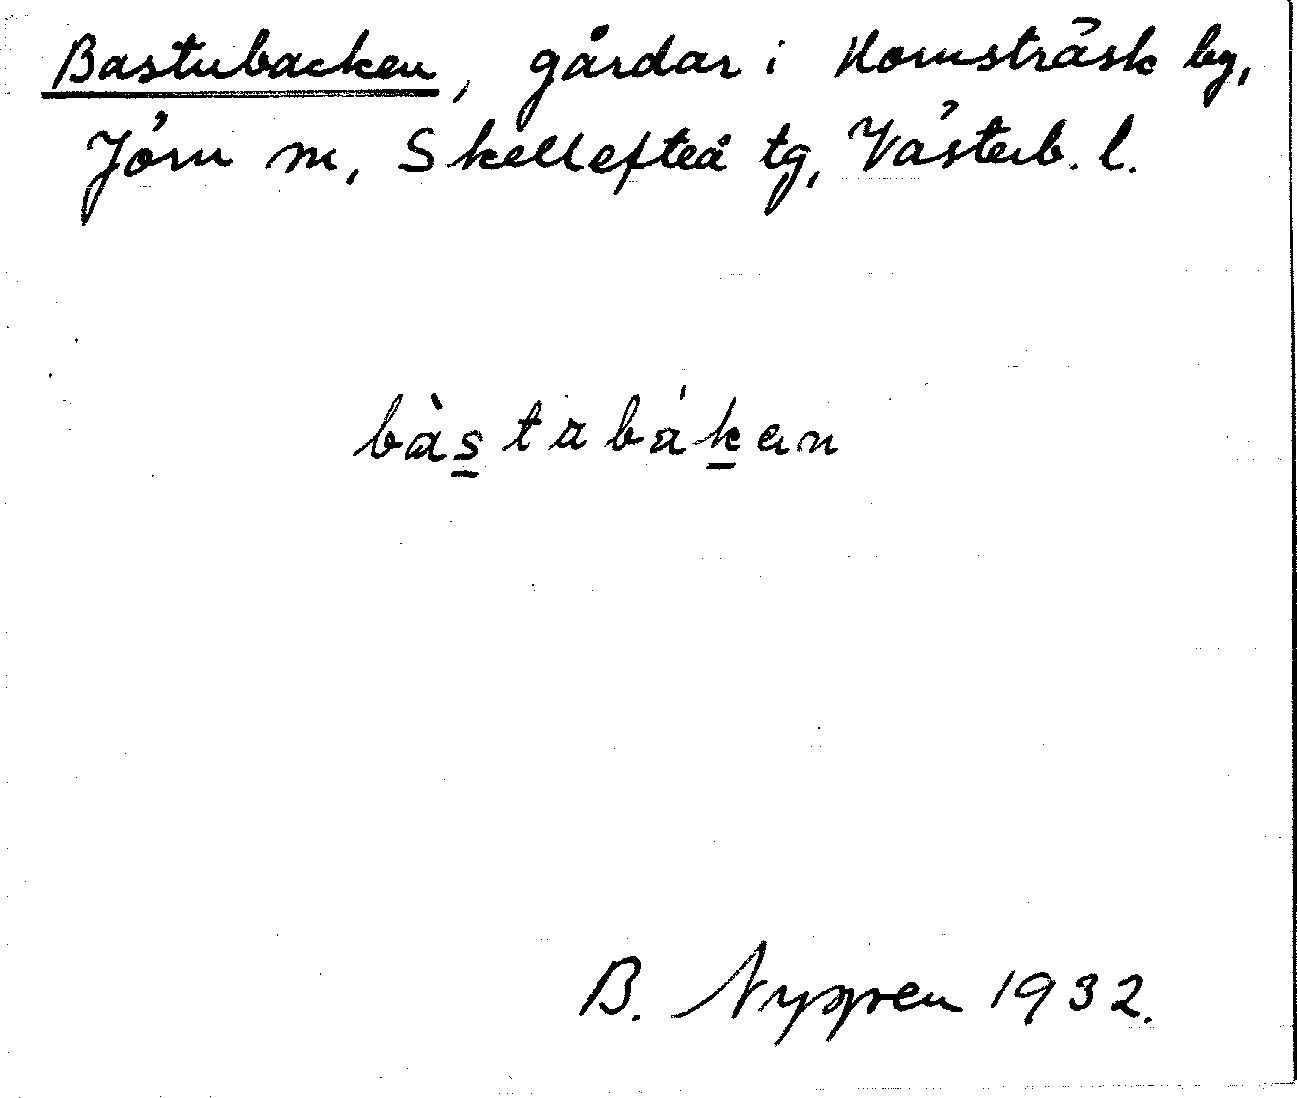 Bastubacken, gårdar i Hornsträsk by,
Jörn sn, Skellefteå tg, Västerb. l.
bàs̲tabák̲an
B. Nygren 1932.